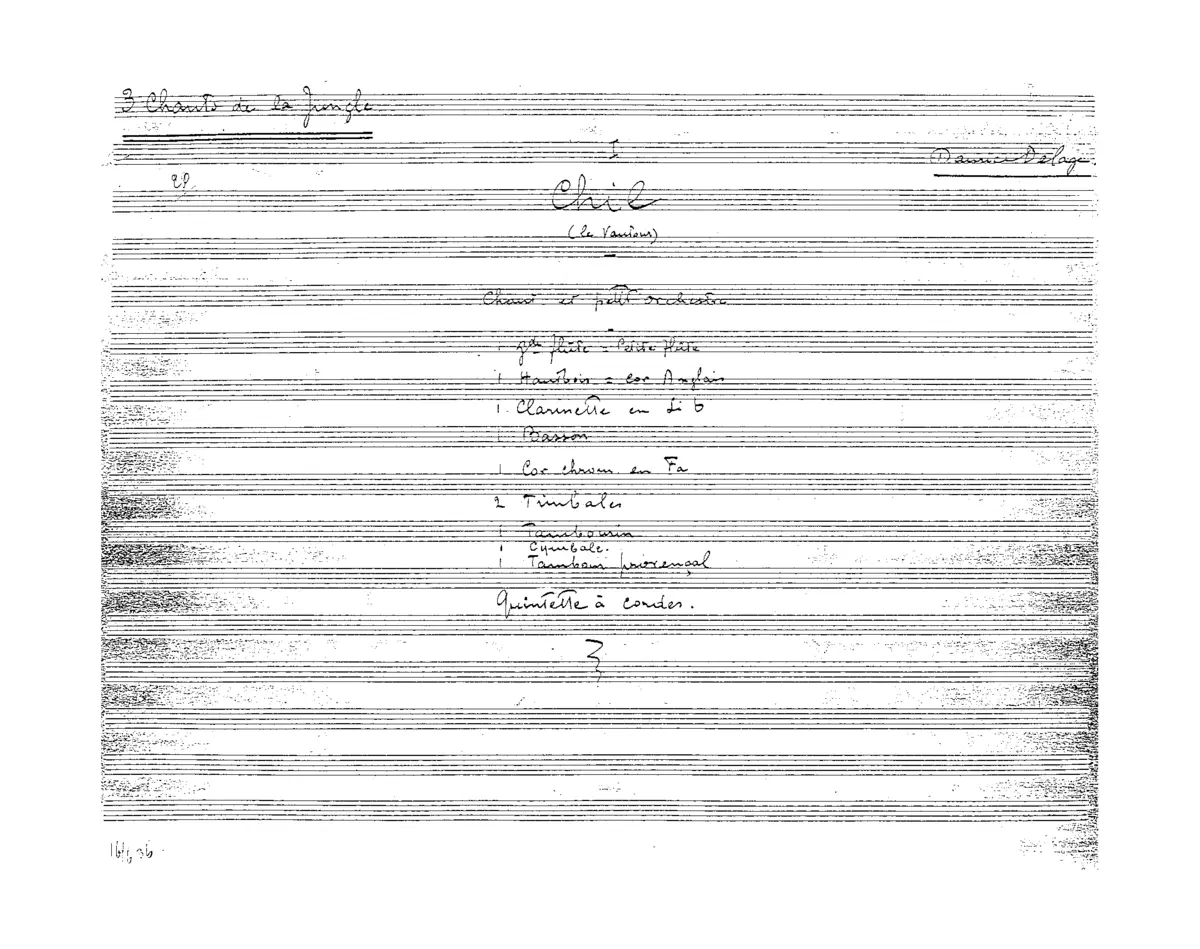 3 Chants de la Jungle
I
Maurice Delage.
Chil
(le Vautour)
Chant et petit orchestre
1 gde flûte = Petite flûte
1 Hautbois = Cor Anglais
1 Clarinette en Si b
1 Basson
1 Cor chrom. en Fa
2 Timbales
1 Tambourin
1 Cymbale.
1 Tambour provençal
Quintette à cordes.